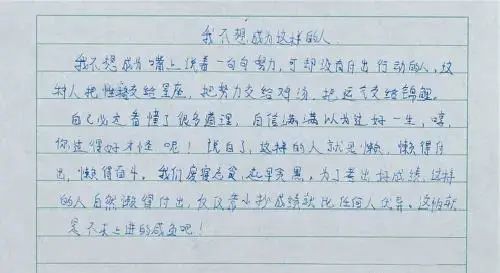 我不想成为这样的人
我不想成为嘴上说着一白白努力,可却没有付出行动的人,这
种人把性格交给星座,把努力交给鸡汤,把运气交给锦鲤。
自己必定看懂了很多道理,自信满满以为过好一生,哼,
你过得好才怪呢!说白了,这样的人就是懒,懒得付
出,懒得奋斗。我们废寝忘食,起早贪黑,为了考出好成绩,这样
的人自然懒得付出,仅仅靠小抄成绩就比任何人优异。这病就
是不求上进的咸鱼吧!